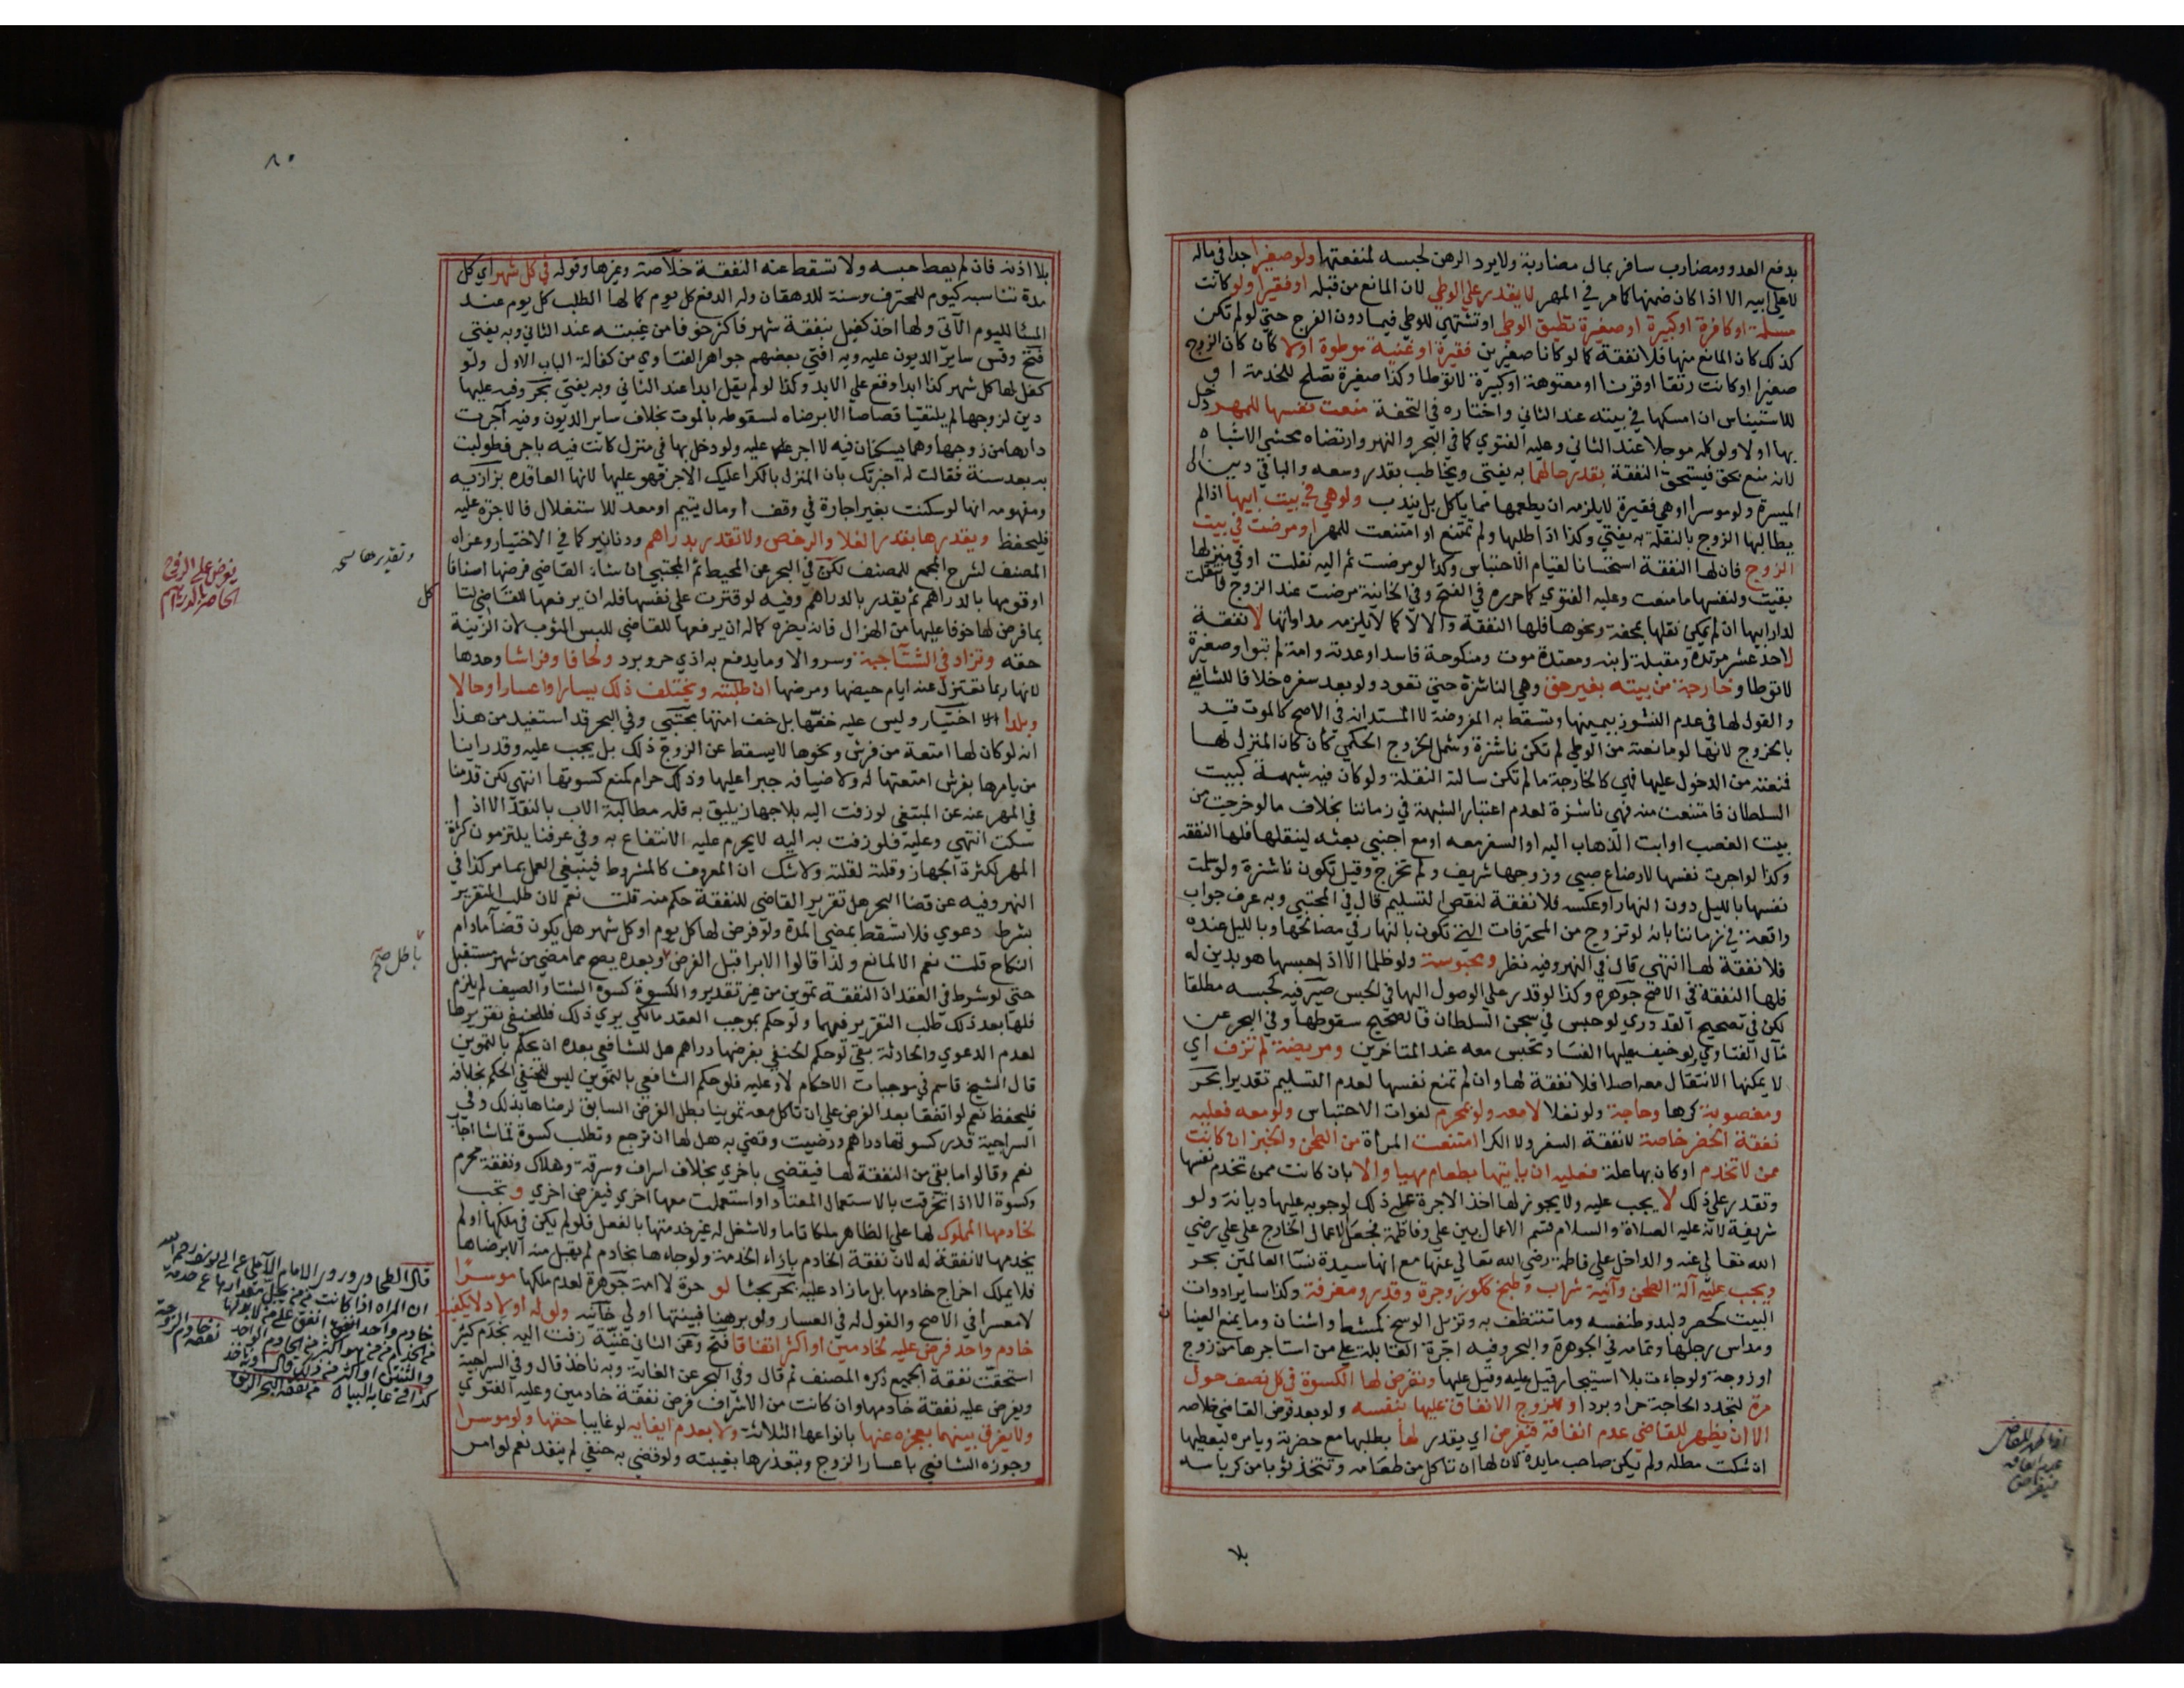 بدفع العدو ومضارب سافر بمال مضاربة ولا يرد الرهن لحبسه لمنفعتها ولو صغيرا جدا في ماله
لا على ابيه الا اذا كان ضمنها كما مر في المهر لا يقدر على الوطي لان المانع من قبله او فقيرا ولو كانت
مسلمة او كافرة او كبيرة او صغيرة تطيق الوطي او تشتهي للوطي فيما دون الفرج حتى لو لم تكن
كذلك كان المانع منها فلا نفقة كما لو كانا صغيرين فقيرة او غنية موطوة او لا كان كان الزوج
صغيرا او كانت رتقا او قرنا او معتوهة او كبيرة لا توطا وكذا صغيرة تصلح للخدمة او
للاستيناس ان امسكها في بيته عند الثاني واختاره في التحفة منعت نفسها للمهر دخل
بها او لا ولو كله موجلا عند الثاني وعليه الفتوي كما في البحر والنهر وارتضاه محشي الاشباه
لانه منع بحق فيستحق النفقة بقدر حالهما به يفتى ويخاطب بقدر وسعه والباقي دين الى
الميسرة ولو موسرا وهي فقيرة لا يلزمه ان يطعمها مما ياكل بل يندب ولو هي في بيت ابيها اذا لم
يطالبها الزوج بالنقلة به يفتى وكذا اذا طلبها ولم تمتنع او امتنعت للمهر او مرضت في بيت
الزوج فان لها النفقة استحسانا لقيام الاحتباس وكذا لو مرضت ثم اليه نقلت او في منزلها
بقيت ولنفسها ما منعت وعليه الفتوي كما حرره في الفتح وفي الخانية مرضت عند الزوج فانتقلت
لدار ابيها ان لم يمكن نقلها بمحفة ونحوها فلها النفقة والا لا كما لا يلزمه مداواتها لا نفقة
لاحد عشر مرتدة ومقبلة ابنه ومعتدة موت ومنكوحة فاسدا وعدته وامة لم تبوا وصغيرة
لا توطا وخارجة من بيته بغير حق وهي الناشزة حتى تعود ولو بعد سفره خلافا للشافعي
والقول لها في عدم النشوز بيمينها وتسقط به المفروضة لا المستدانه في الاصح كالموت قيد
بالخروج لانها لو مانعته من الوطي لم تكن ناشزة وشمل الخروج الحكمي كان كان المنزل لها
فمنعته من الدخول عليها فهي كالخارجة ما لم تكن سالته النقلة ولو كان فيه شبهة كبيت
السلطان فامتنعت منه فهي ناشزة لعدم اعتبار الشبهة في زماننا بخلاف ما لو خرجت من
بيت الغصب او ابت الذهاب اليه او السفر معه او مع اجنبي بعثه لينقلها فلها النفقه
وكذا لو اجرت نفسها لارضاع صبي وزوجها شريف ولم تخرج وقيل تكون ناشزة ولو سلمت
نفسها بالليل دون النهار او عكسه فلا نفقة لنقص التسليم قال في المجتبي وبه عرف جواب
واقعة في زماننا بانه لو تزوج من المحترفات التي تكون بالنهار في مصالحها وبالليل عنده
فلا نفقة لها انتهى قال في النهر وفيه نظر ومحبوسة ولو ظلما الا اذا حبسها هو بدين له
فلها النفقة في الاصح جوهرة وكذا لو قدر على الوصول اليها في الحبس صيرفيه كحبسه مطلقا
لكن في تصحيح القدوري لو حبس في سجن السلطان فالصحيح سقوطها وفي البحر عن
مآل الفتاوي لو خيف عليها الفساد تحبس معه عند المتاخرين ومريضة لم تزف اي
لا يمكنها الانتقال معه اصلا فلا نفقة لها وان لم تمنع نفسها لعدم التسليم تقديرا بحر
ومغصوبة كرها وحاجة ولو نفلا لا معه ولو بمحرم لفوات الاحتباس ولو معه فعليه
نفقة الحضر خاصة لا نفقة السفر ولا الكرا امتنعت المرأة من الطحن والخبز ان كانت
ممن لا تخدم او كان بها علة فعليه ان ياتيها بطعام مهيا والا بان كانت ممن تخدم نفسها
وتقدر على ذلك لا يجب عليه ولا يجوز لها اخذ الاجرة على ذلك لوجوبه عليها ديانة ولو
شريفة لانه عليه الصلاة والسلام قسم الاعمال بين علي وفاطمة فجعل الاعمال الخارج على علي رضي
الله تعالى عنه والداخل على فاطمة رضي الله تعالى عنها مع انها سيدة نسآ العالمين بحر
ويجب عليه آلة الطحن وآنية شراب وطبخ ككوز وجرة وقدر ومغرفة وكذا ساير ادوات
البيت كحصر ولبد وطنفسه وما تتنظف به وتزيل الوسخ كمشط واشنان وما يمنع الصنان
ومداس رجلها وتمامه في الجوهرة والبحر وفيه اجرة القابلة على من استاجرها من زوج
او زوجة ولو جاءت بلا استيجار قيل عليه وقيل عليها وتفرض لها الكسوة في كل نصف حول
مرة لتجدد الحاجة حرا وبردا وللزوج الانفاق عليها بنفسه ولو بعد فرض القاضي خلاصه
الا ان يظهر للقاضي عدم انفاقه فيفرض اي يقدر لها بطلبها مع حضرته ويامره ليعطيها
ان شكت مطله ولم يكن صاحب مايدة لان لها ان تاكل من طعامه وتتخذ ثوبا من كرباسه
بلا
٨٠
بلا اذنه فان لم يعط حبسه ولا تسقط عنه النفقة خلاصة وغيرها وقوله في كل شهر اي كل
مدة تناسبه كيوم للمحترف وسنة للدهقان وله الدفع كل يوم كما لها الطلب كل يوم عند
المسا لليوم الآتي ولها اخذ كفيل بنفقة شهر فاكثر خوفا من غيبته عند الثاني وبه يفتى
فتح وقس ساير الديون عليه وبه افتى بعضهم جواهر الفتاوي من كفالة الباب الاول ولو
كفل لها كل شهر كذا ابدا وقع على الابد وكذا لو لم يقل ابدا عند الثاني وبه يفتى بحر وفيه عليها
دين لزوجها لم يلتقيا قصاصا الا برضاه لسقوطه بالموت بخلاف ساير الديون وفيه آجرت
دارها من زوجها وهما يسكنان فيه لا اجر عليه ولو دخل بها في منزل كانت فيه باجر فطولبت
به بعد سنة فقالت له اخبرتك بان المنزل بالكرا عليك الاجر فهو عليها لانها العاقدة بزازيه
ومفهومه انها لو سكنت بغير اجارة في وقف او مال يتيم او معد للاستغلال فالاجرة عليه
فليحفظ ويقدرها بقدر الغلا والرخص ولا تقدر بدراهم ودنانير كما في الاختيار وعزاه
المصنف لشرح المجمع للمصنف لكن في البحر عن المحيط ثم المجتبي ان شاء القاضي فرضها اصنافا
او قومها بالدراهم ثم يقدر بالدراهم وفيه لو قترت على نفسها فله ان يرفعها للقاضي لتاكل
بما فرض لها خوفا عليها من الهزال فانه يضره كما له ان يرفعها للقاضي للبس الثوب لان الزينة
حقه وتزاد في الشتآ جبة وسروالا وما يدفع به اذي حر وبرد ولحافا وفراشا وحدها
لانها ربما تعتزل عنه ايام حيضها ومرضها ان طلبته ويختلف ذلك يسارا واعسارا وحالا
وبلدا اختيار وليس عليه خفها بل خف امتها مجتبي وفي البحر قد استفيد من هذا
انه لو كان لها امتعة من فرش ونحوها لا يسقط عن الزوج ذلك بل يجب عليه وقد راينا
من يامرها بفرش امتعتها له ولاضيافه جبرا عليها وذلك حرام كمنع كسوتها انتهى لكن قدمنا
في المهر عنه عن المبتغى لو زفت اليه بلا جهاز يليق به فله مطالبة الاب بالنقد الا اذا
سكت انتهى وعليه فلو زفت به اليه لا يحرم عليه الانتفاع به وفي عرفنا يلتزمون كثرة
المهر لكثرة الجهاز وقلته لقلته ولا شك ان المعروف كالمشروط فينبغي العمل بما مر كذا في
النهر وفيه عن قضا البحر هل تقرير القاضي للنفقة حكم منه قلت نعم لان طلب التقرير
بشرطه دعوي فلا تسقط بمضي المدة ولو فرض لها كل يوم او كل شهر هل يكون قضآ ما دام
النكاح قلت نعم الا لمانع ولذا قالوا الابرا قبل الفرض وبعده يصح مما مضى من شهر مستقبل
حتى لو شرط في العقد ان النفقة تموين من غير تقدير والكسوة كسوة الشتا والصيف لم يلزم
فلها بعد ذلك طلب التقرير فيهما ولو حكم بموجب العقد مالكي يري ذلك فللحنفي تقديرها
لعدم الدعوي والحادثة بقي لو حكم الحنفي بفرضها دراهم هل للشافعي بعده ان يحكم بالتموين
قال الشيخ قاسم في موجبات الاحكام لا وعليه فلو حكم الشافعي بالتموين ليس للحنفي الحكم بخلافه
فليحفظ نعم لو اتفقا بعد الفرض على ان تاكل معه تموينا بطل الفرض السابق لرضاها بذلك وفي
السراجية قدر كسوتها دراهم ورضيت وقضي به هل لها ان ترجع وتطلب كسوة قماشا اجاب
نعم وقالوا ما بقي من النفقة لها فيقضي باخري بخلاف اسراف وسرقة وهلاك ونفقة محرم
وكسوة الا اذا تخرقت بالاستعمال المعتاد او استعملت معها اخري فيفرض اخري وتجب
لخادمها المملوك لها على الظاهر ملكا تاما ولا شغل له غير خدمتها بالفعل فلو لم يكن في ملكها او لم
يخدمها لا نفقة له لان نفقة الخادم بازاء الخدمة ولو جاءها بخادم لم يقبل منه الا برضاها
فلا يملك اخراج خادمها بل ما زاد عليه بحر بحثا لو حرة لا امة جوهرة لعدم ملكها موسرا
لا معسرا في الاصح والقول له في العسار ولو برهنا فبينتها اولى خانيه ولو له اولاد لا يكفيه
خادم واحد فرض عليه لخادمين او اكثر اتفاقا فتح وعن الثاني غنية زفت اليه بخدم كثير
استحقت نفقة الجميع ذكره المصنف ثم قال وفي البحر عن الغاية وبه ناخذ قال وفي السراجية
ويفرض عليه نفقة خادمها وان كانت من الاشراف فرض نفقة خادمين وعليه الفتوي
ولا يفرق بينهما بعجزه عنها بانواعها الثلاثة ولا بعدم ايفايه لو غايبا حقها ولو موسرا
وجوزه الشافعي باعسار الزوج وبتعذرها بغيبته ولو قضي به حنفي لم ينفذ نعم لو امر
وتقديرها صح
باطل صح